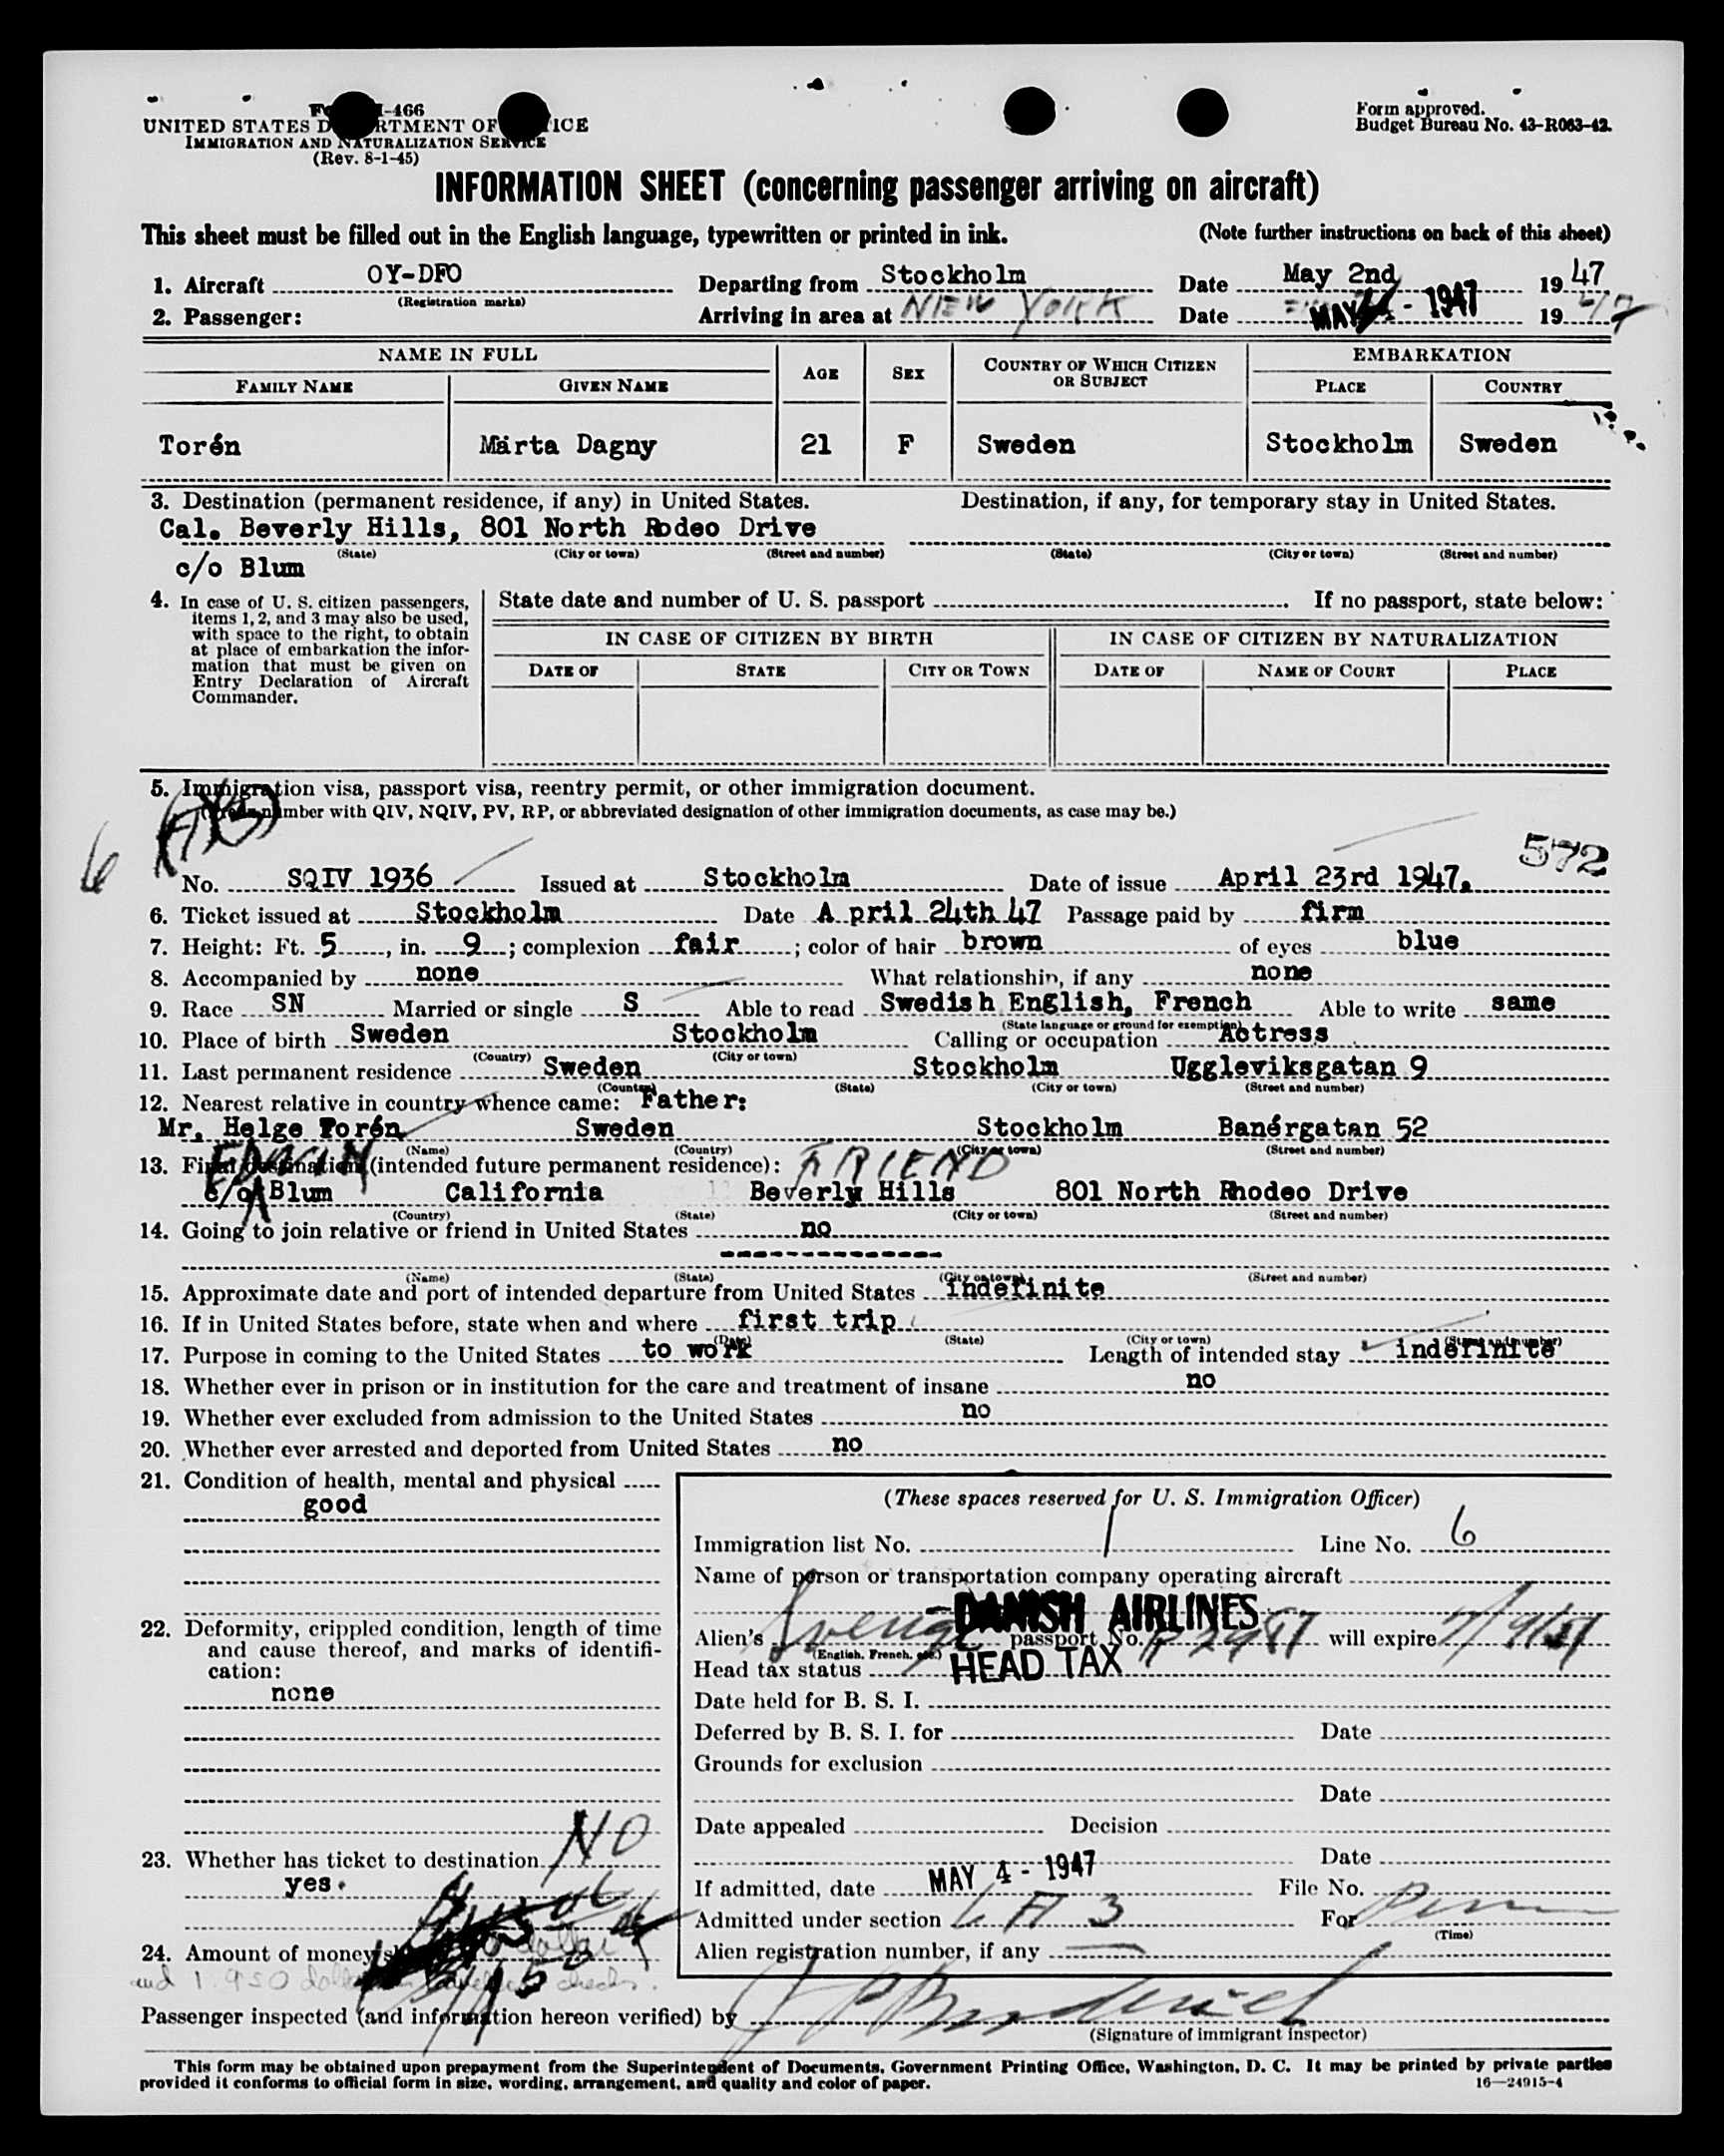 Form I-466
UNITED STATES DEPARTMENT OF JUSTICE
IMMIGRATION AND NATURALIZATION SERVICE
(Rev. 8-1-45)
Form approved.
Budget Bureau No. 43-R063-42.
INFORMATION SHEET (concerning passenger arriving on aircraft)
This sheet must be filled out in the English language, typewritten or printed in ink. (Note further instructions on back of this sheet)
1. Aircraft OY-DFO Departing from Stockholm Date May 2nd 1947
(Registration marks)
2. Passenger: Arriving in area at NEW YORK Date MAY 4 - 1947 1947
NAME IN FULL AGE SEX COUNTRY OF WHICH CITIZEN OR SUBJECT EMBARKATION
FAMILY NAME GIVEN NAME PLACE COUNTRY
Torén Märta Dagny 21 F Sweden Stockholm Sweden
3. Destination (permanent residence, if any) in United States. Destination, if any, for temporary stay in United States.
Cal. Beverly Hills, 801 North Rodeo Drive
(State) (City or town) (Street and number) (State) (City or town) (Street and number)
c/o Blum
4. In case of U. S. citizen passengers, items 1, 2, and 3 may also be used, with space to the right, to obtain at place of embarkation the information that must be given on Entry Declaration of Aircraft Commander.
State date and number of U. S. passport . If no passport, state below:
IN CASE OF CITIZEN BY BIRTH IN CASE OF CITIZEN BY NATURALIZATION
DATE OF STATE CITY OR TOWN DATE OF NAME OF COURT PLACE
5. Immigration visa, passport visa, reentry permit, or other immigration document.
number with QIV, NQIV, PV, RP, or abbreviated designation of other immigration documents, as case may be.)
6
572
No. SQIV 1936 Issued at Stockholm Date of issue April 23rd 1947.
6. Ticket issued at Stockholm Date A pril 24th 47 Passage paid by firm
7. Height: Ft. 5, in. 9; complexion fair; color of hair brown of eyes blue
8. Accompanied by none What relationship, if any none
9. Race SN Married or single S Able to read Swedish English, French Able to write same
(State language or ground for exemption)
10. Place of birth Sweden Stockholm Calling or occupation Actress
(Country) (City or town)
11. Last permanent residence Sweden Stockholm Uggleviksgatan 9
(Country) (State) (City or town) (Street and number)
12. Nearest relative in country whence came: Father:
Mr. Helge Torén Sweden Stockholm Banérgatan 52
(Name) (Country) (City or town) (Street and number)
13. Final destination (intended future permanent residence):
EDWIN FRIEND
c/o Blum California Beverly Hills 801 North Rhodeo Drive
(Country) (State) (City or town) (Street and number)
14. Going to join relative or friend in United States no
(Name) (State) (City or town) (Street and number)
15. Approximate date and port of intended departure from United States indefinite
16. If in United States before, state when and where first trip
(Date) (State) (City or town) (Street and number)
17. Purpose in coming to the United States to work Length of intended stay indefinite
18. Whether ever in prison or in institution for the care and treatment of insane no
19. Whether ever excluded from admission to the United States no
20. Whether ever arrested and deported from United States no
21. Condition of health, mental and physical
good
22. Deformity, crippled condition, length of time and cause thereof, and marks of identification:
none
23. Whether has ticket to destination NO
yes.
24. Amount of money
and 1.950 checks.
(These spaces reserved for U. S. Immigration Officer)
Immigration list No. 1 Line No. 6
Name of person or transportation company operating aircraft
DANISH AIRLINES
Alien's passport No. will expire
(English, French, etc.)
Head tax status HEAD TAX
Date held for B. S. I.
Deferred by B. S. I. for Date
Grounds for exclusion
Date
Date appealed Decision
Date
If admitted, date MAY 4 - 1947 File No.
Admitted under section 4 A 3 For Perm
(Time)
Alien registration number, if any
Passenger inspected (and information hereon verified) by
(Signature of immigrant inspector)
This form may be obtained upon prepayment from the Superintendent of Documents, Government Printing Office, Washington, D. C. It may be printed by private parties
provided it conforms to official form in size, wording, arrangement, and quality and color of paper. 16—24915-4